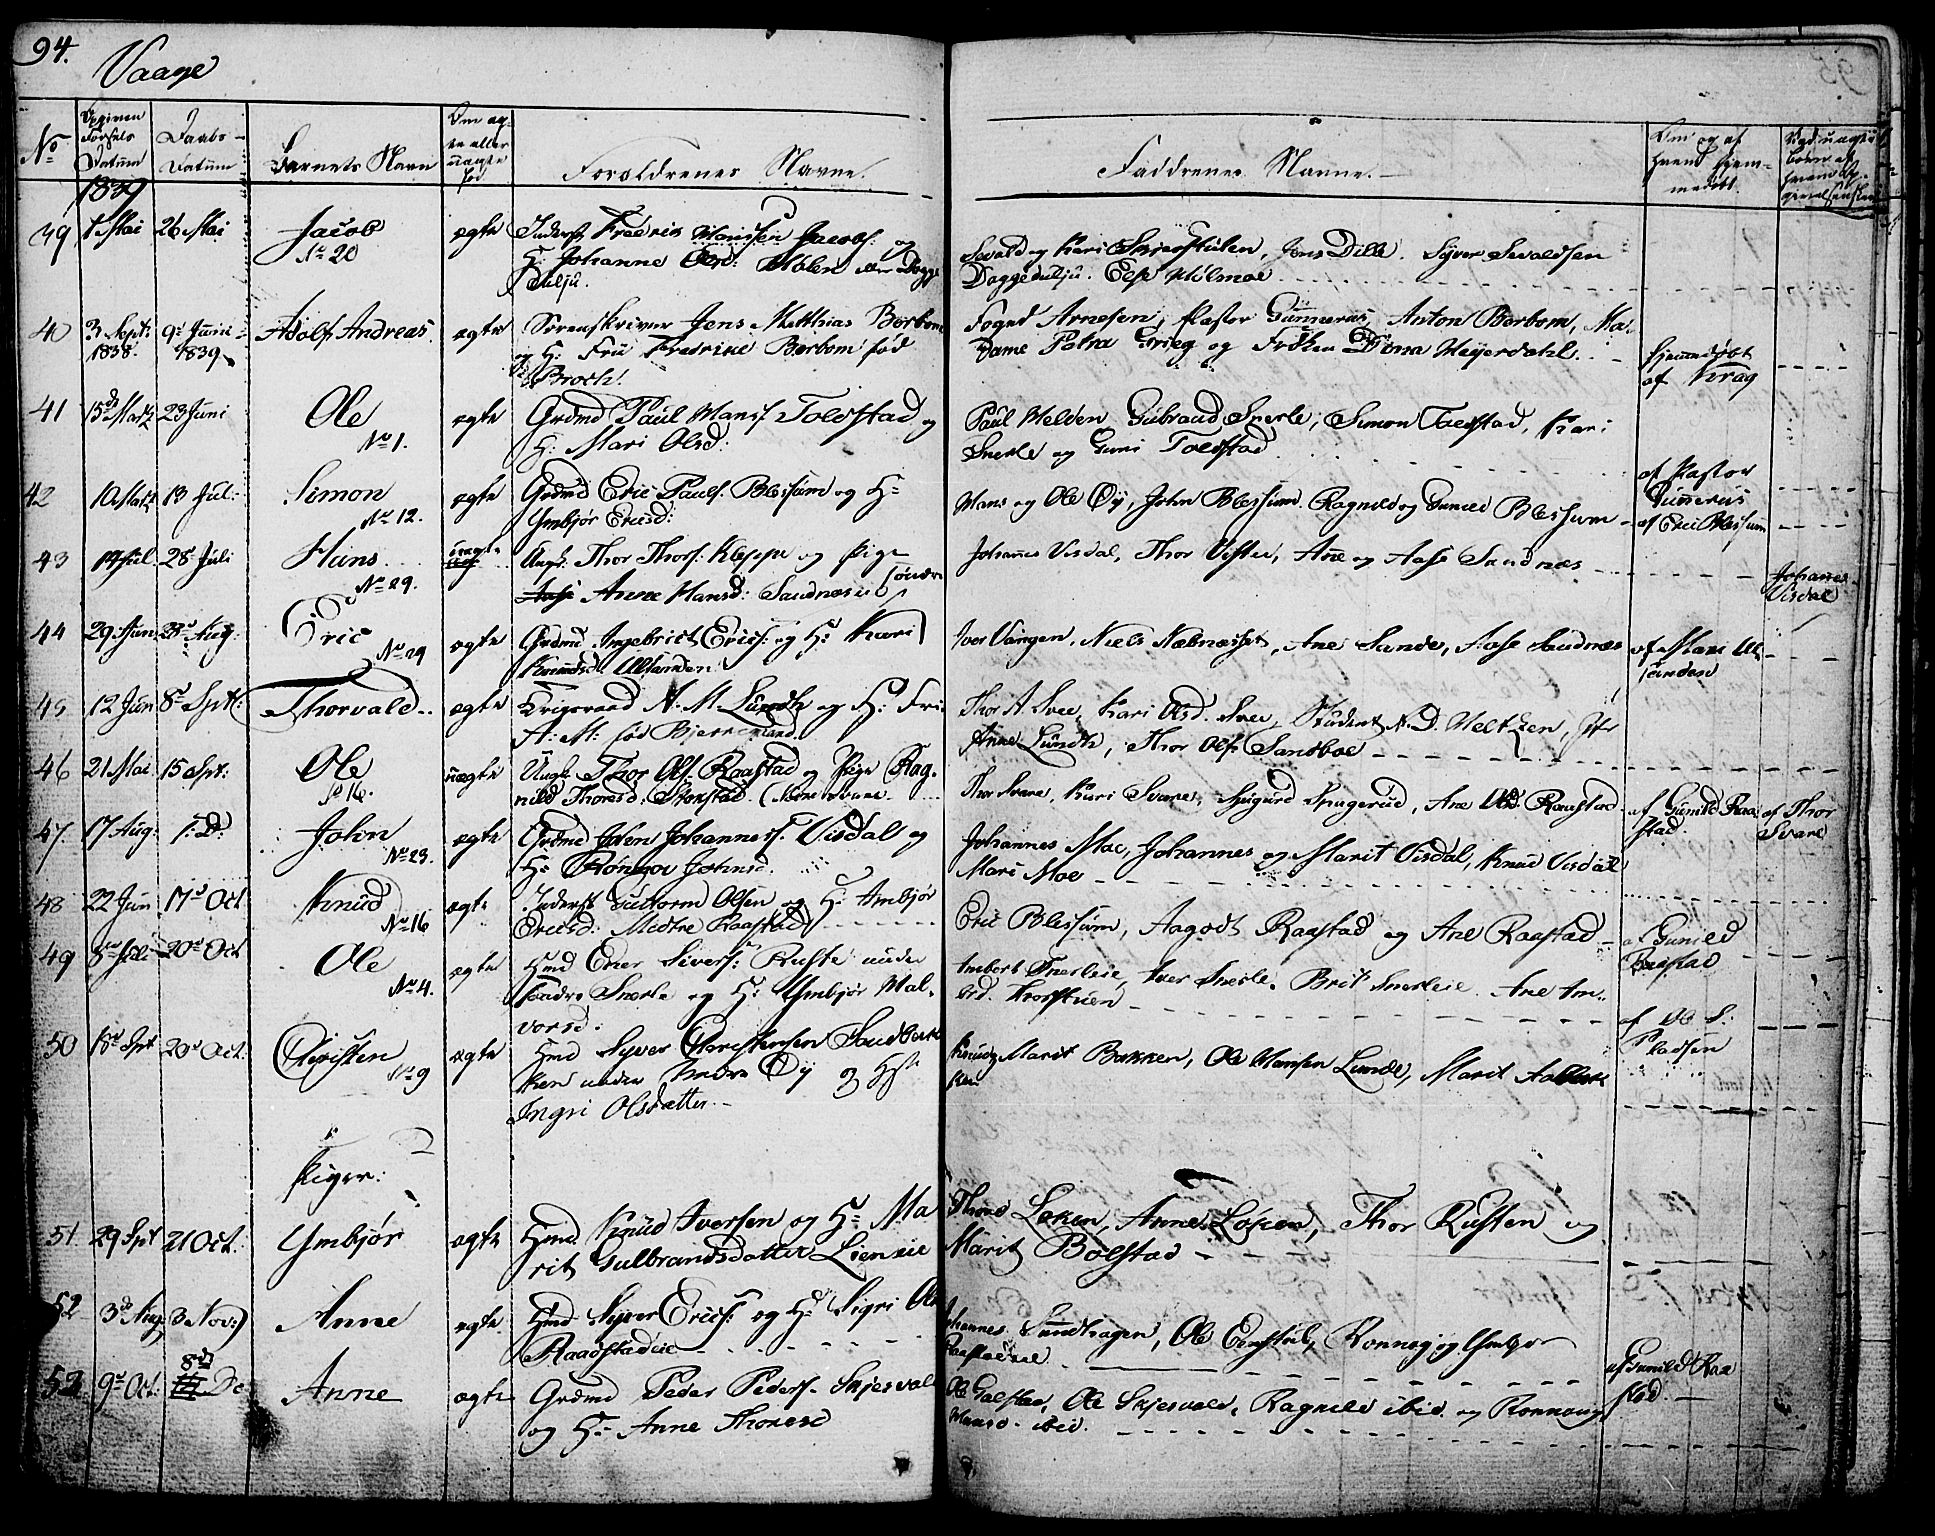 94.
Vaage
No
Opgiven Fødsels Datum
Daabs-Datum
Barnets Navn
Om ægte eller uægte fød.
Forældrenes Navne.
Faddrenes Navne.
Om og af hvem hjemmedøbt.
1839
39 1 Mai 26 Mai Jacob No 20 ægte Inderst Fredrik Jacobs: og
H: Johanne Olsd: Holen
Sevald og Kari Skjerstulen, Jens Dille. Syver Sevaldsen
Daggedulju. Else Holmoe
40 3 Sept: 1838. 9de Juni 1839 Adolf Andreas. ægte Sorenskriver Jens Matthias Borbom
og H: Fru Fredrike Borbom fød
Broch.
Foged Arnesen, Pastor Gunnerus, Anton Borbom, Ma-
dame Petra Grieg og Frøken Dina Meyerdahl.
hjemmedøbt
af Krag
41 15de Martz 23 Juni Ole No 1. ægte Grdmd Paul Hans: Toldstad og
H: Mari Olsd:
Paul Melden Gubrand Snerle, Simon Toldstad, Kari
Snerle og Guri Toldstad
af Pastor
Gunnerus
42 10 Martz 13 Jul: Simon No 12. ægte Grdmd Eric Pauls: Blessum og H:
Ymbjør Ericsd:
Hans og Ole Øy, John Blessum. Ragnild og Gunild Blessum
af Eric Blessum
43 14 Jul. 28 Juli Hans No 29. uægte Ungk. Thor Thors: Kleppe og Pige
Anne Hansd: Sandnæs
Johannes Visdal, Thor Visten, Ane og Aase Sandnæs
Johannes
Visdal
44 29 Jun: 28d Aug: Eric No 29 ægte Grdmd Ingebrict Erics: og H: Kari
Knudsd: Ullsanden
Iver Vangen, Niels Næbnæsset, Ane Sande, Aase Sandnæs
af Mari Ul-
sanden
45 12 Jun 8d Spt: Thorvald ægte Krigsraad A. M. Lundh og H: Fru
A: M: fød Bjerregaard.
Thor A. Svee, Kari Olsd. Svee, Student N. D. Meltzen, Jfr
Anne Lundh, Thor Ols: Sandboe
46 21 Mai 15 Spt: Ole No 16. uægte Ungk. Thor Ols: Raastad og Pige Rag-
nild Thoresd: Stokstad.
Thor Svare, Kari Svare, Sigurd Spugerud, Ane Olsd. Raastad
af Gunild Raa-
stad.
af Thor
Svare
47. 17 Aug: s: D: John No 23. ægte Grdmd John Johanness. Visdal og
H: Rønnov Johnsd.
Johannes Moe, Johannes og Marit Visdal, Knud Visdal
Mari Moe
48 22 Jun 17d Oct Knud No 16 ægte Inderst Guttorm Olsen og H: Ambjør
Ericsd: Midtre Raastad
Eric Blessum, Aagodt Raastad og Ane Raastad
af Gunild
Raastad
49 8de Juli 20d Oct Ole No 4. ægte Hmd Ener Sivers: Ruste under
Søndre Snerle og H: Ymbjør Hal-
vorsd:
Ambert Snerleie, Iver Snerle, Brit Snerleie. Ane Am-
brd. Thorstuen
af Ole S.
Pladsen
50 18d Spt 20d Oct. Christen No 9 ægte Hmd Syver Christensen Sandbak-
ken under Nedre Øy og Hst:
Ingri Olsdatter.
Knud og Marit Bakken, Ole Hansen Lunde, Marit Aabak-
ken
Piger:
51 29 Spt 21 Oct. Ymbjør ægte Hmd Knud Iversen og H: Ma-
rit Gulbrandsdatter Lieneie
Thord Løken, Anne Løken, Thor Rusten og
Marit Bolstad
52 3d Aug 3 Nov: Anne ægte Hmd Syver Erics: og H: Sigri Ols
Raadstadeie
Johannes Sundhagen, Ole Engstul, Ronnog og Ymbjør
Raastadeie
53 9d Oct. 8de De Anne ægte Grdmd Peder Peders: Skjesvold
og H: Anne Thoresd
Ole Galstad, Ole Skjesvold, Ragnild ibid. og Ronnoug
Hansd. ibid.
af Gunild Raa
stad.